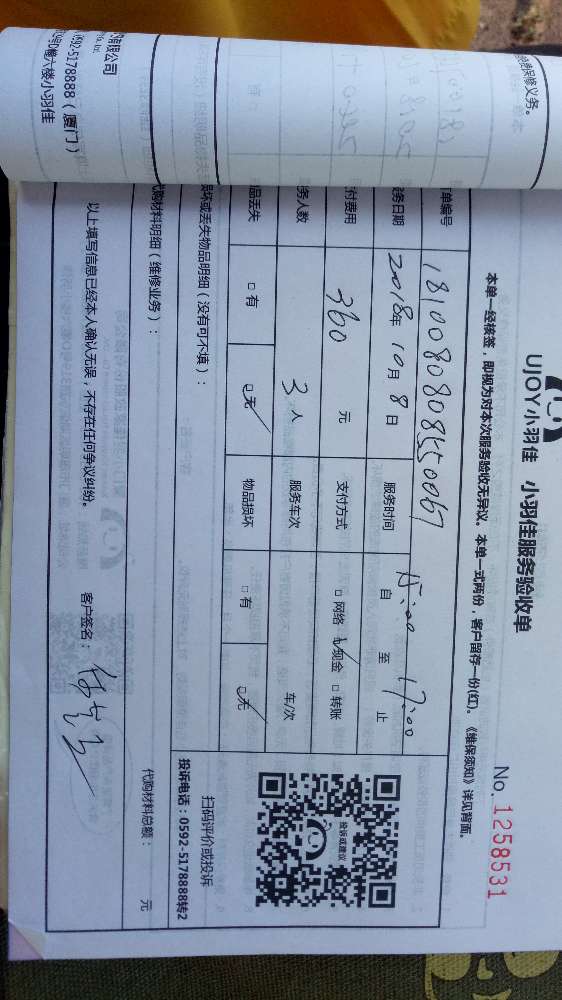 免费保修义务。
有限公司
0592-5178888（厦门）
六楼小羽佳
UJOY小羽佳 小羽佳服务验收单
No. 1258531
本单一经核签，即视为对本次服务验收无异议。本单一式两份，客户留存一份(红)。《维保须知》详见背面。
订单编号
服务日期 2018年10月8日 服务时间 自15:00至17:00止
付费用 360 元 支付方式 □ 网络 ☑现金 □ 转账
务人数 3 人 服务车次 车/次
品丢失 □ 有 ☑无 物品损坏 □ 有 ☑无
损坏或丢失物品明细（没有可不填）：
扫码评价或投诉
投诉电话：0592-5178888转2
投诉或建议
代购材料明细（维修业务）：
代购材料总额： 元
以上填写信息已经本人确认无误，不存在任何争议纠纷。
客户签名：